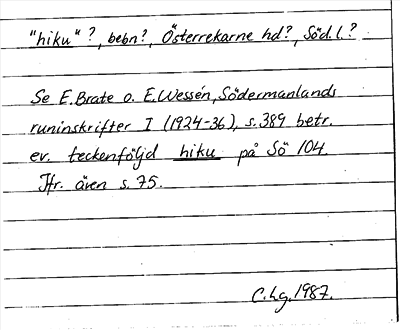 "hiku"?, bebn?, Österrekarne hd?, Söd.l.?
Se E.Brate o. E.Wessén, Södermanlands
runinskrifter I (1924-36), s.389 betr.
ev. teckenföljd hiku på Sö 104.
Jfr. även s.75.
C.hg.1987.